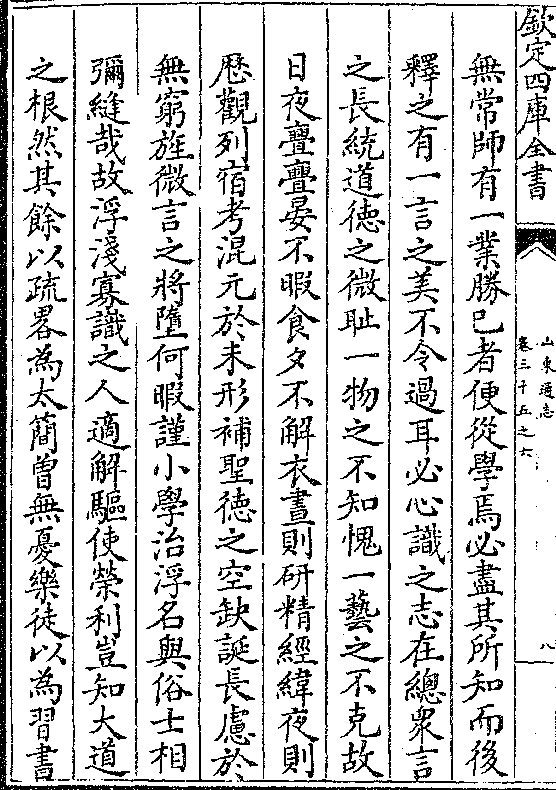 欽定四庫全書
山東通志
卷三十五之六
八
無常師有一業勝己者便從學焉必盡其所知而後
釋之有一言之美不令過耳必心識之志在總衆言
之長統道徳之微耻一物之不知愧一藝之不克故
日夜亹亹晏不暇食夕不解衣晝則研精經緯夜則
歴觀列宿考混元於未形補聖徳之空缺誕長慮於
無窮旌微言之將墮何暇謹小學治浮名與俗士相
彌縫哉故浮淺寡識之人適解驅使榮利豈知大道
之根然其餘以疏畧為太簡曽無憂樂徒以為習書